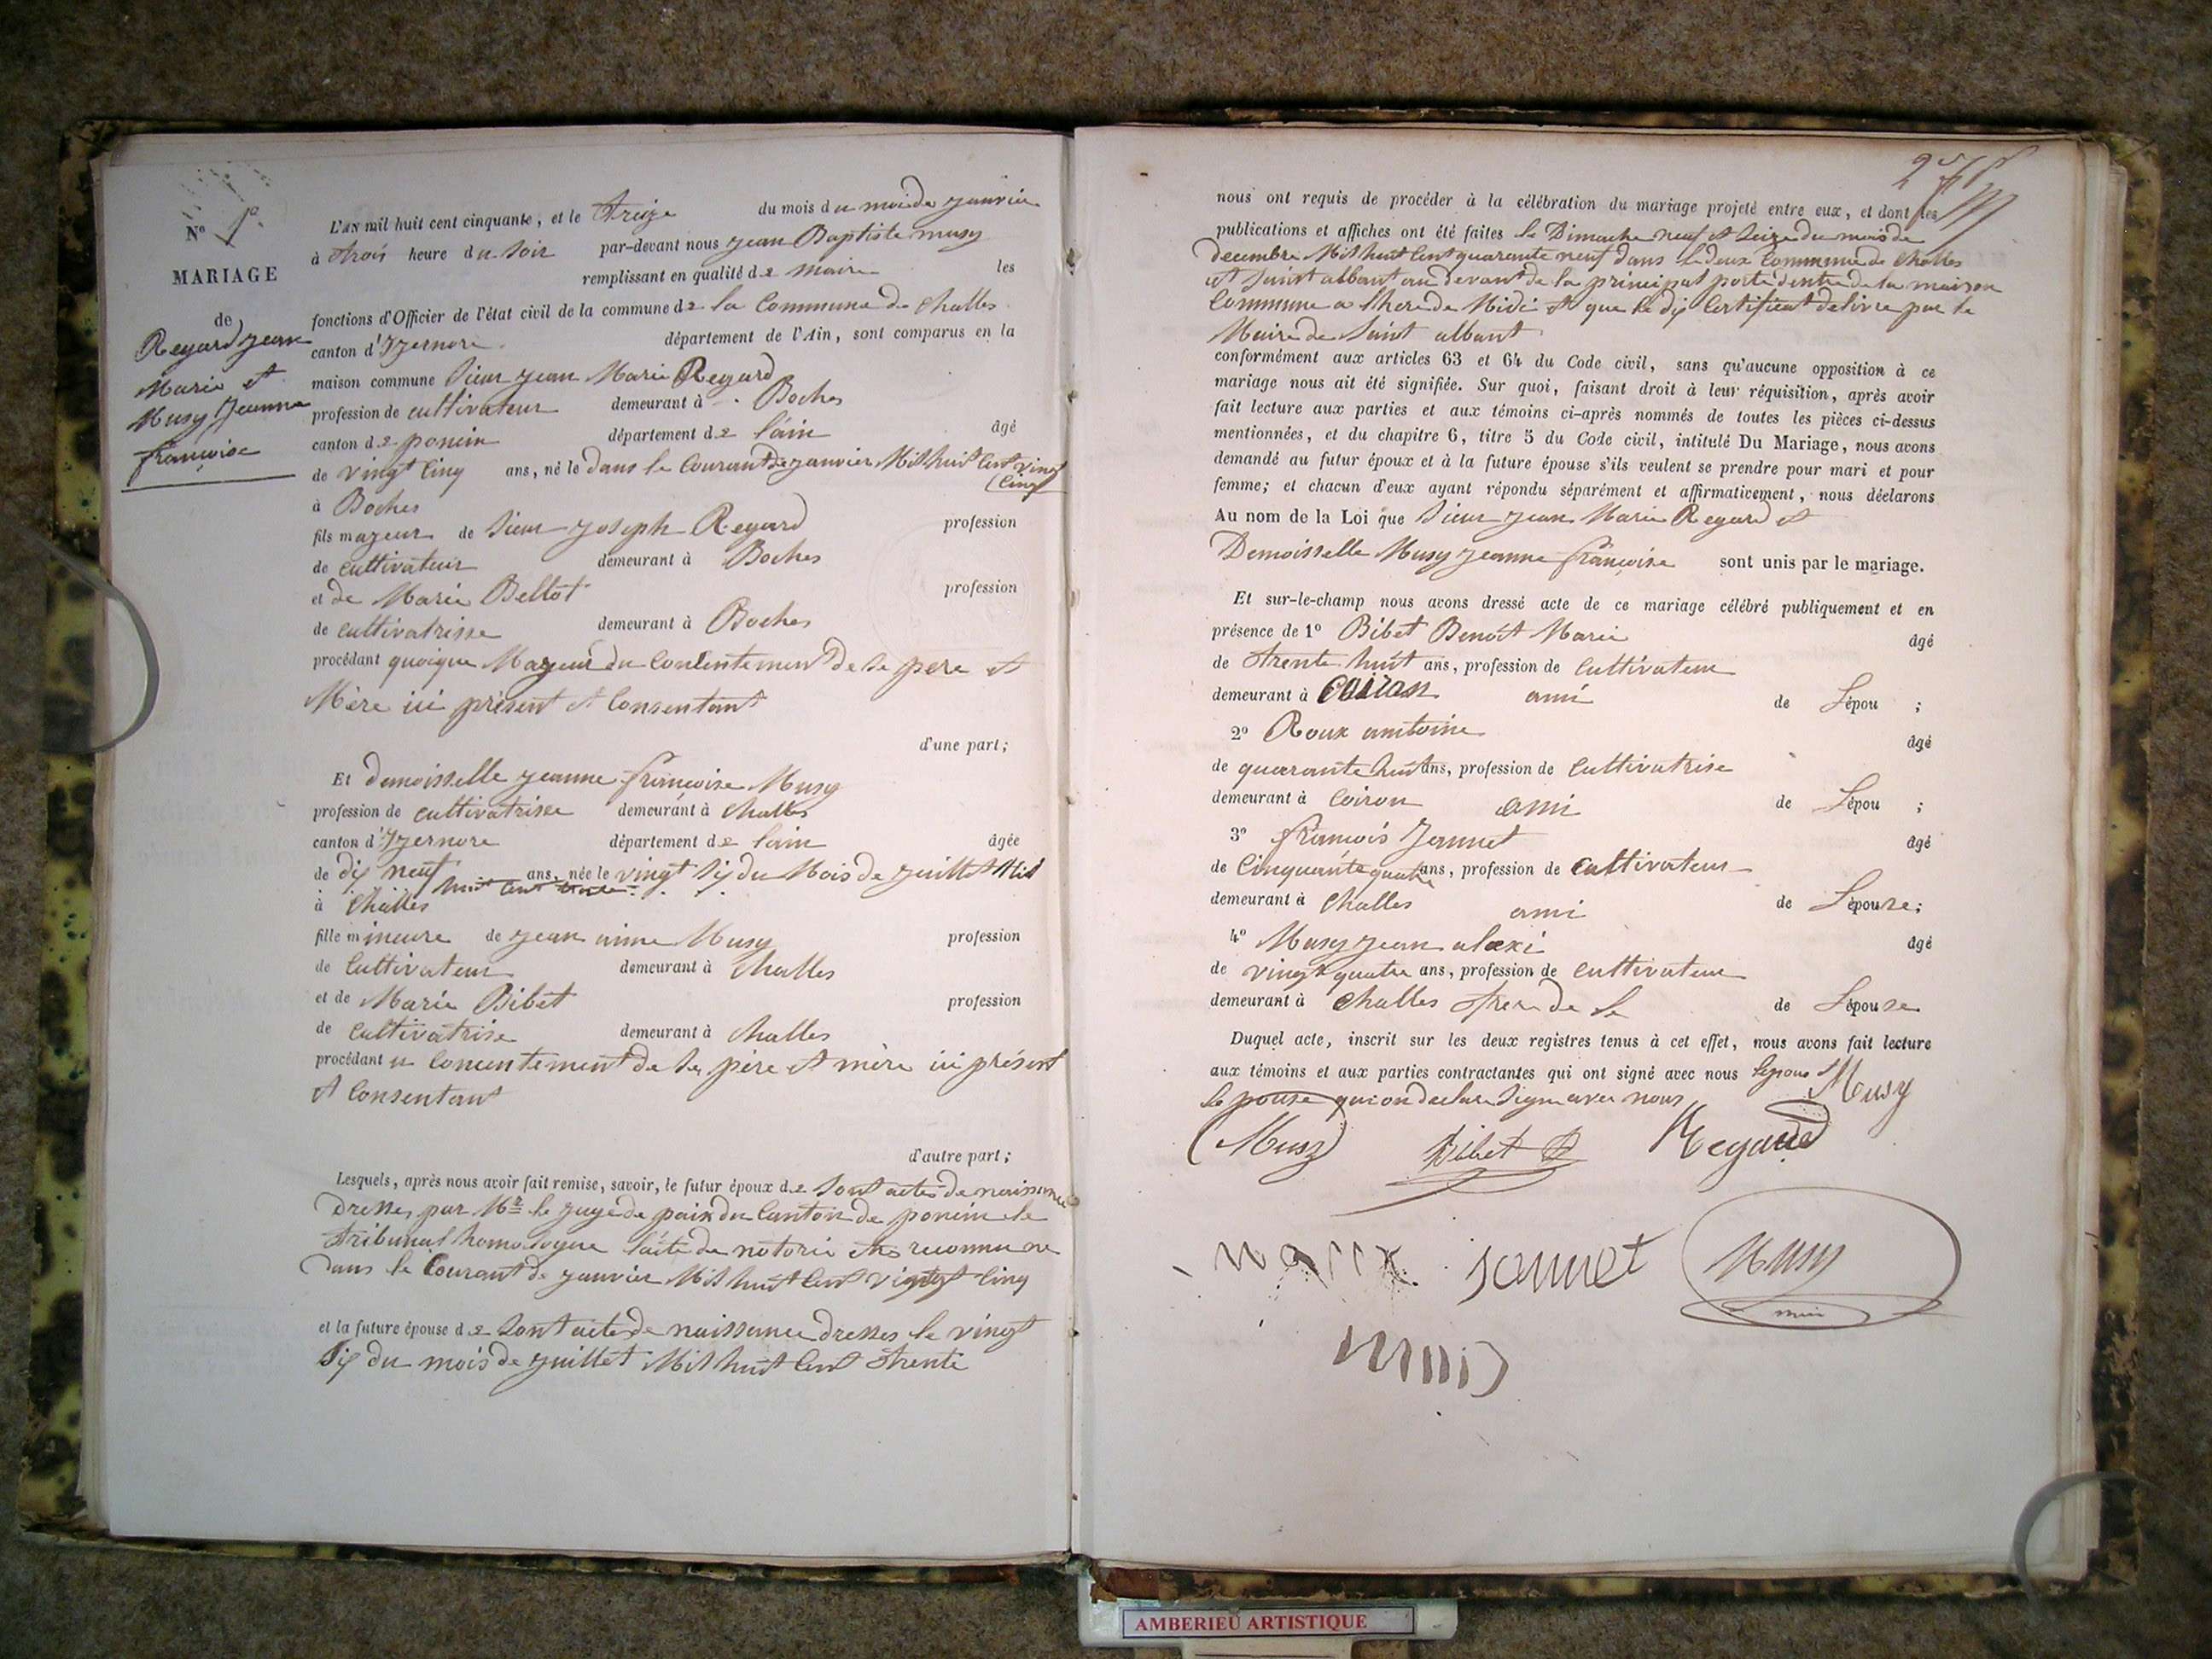 N° 1er
MARIAGE
de
Regard Jean
Marie et
Musy Jeanne
françoise
L'AN mil huit cent cinquante, et le treize du mois du mois de janvier
à trois heure du soir par-devant nous Jean Baptiste musy
remplissant en qualité de maire les
fonctions d'Officier de l'état civil de la commune de la Commune de Challes
canton d'Izernore département de l'Ain, sont comparus en la
maison commune Sieur Jean Marie Regard
profession de cultivateur demeurant à Boches
canton de poncin département de lain âgé
de vingt cinq ans, né le dans le Courant de janvier Mil huit Cent vingt
Cinq
à Boches
fils majeur de Sieur Joseph Regard profession
de cultivateur demeurant à Boches
et de Marie Bellot profession
de cultivatrisse demeurant à Boches
procédant quoique Mageur du Consentement de se père et
Mère ici présent et Consentant
d'une part;
Et demoisselle Jeanne françoise Musy
profession de cultivatrisse demeurant à Challes
canton d'Izernore département de lain âgée
de dix neuf ans, née le vingt Six du Mois de juillet Mil
huit Cent trente
à Challes
fille mineure de jean aime Musy profession
de Cultivateur demeurant à Challes
et de Marie Bibet profession
de Cultivatrise demeurant à Challes
procédant u Consentement de Se père et mère ici présent
et Consentant
d'autre part;
Lesquels, après nous avoir fait remise, savoir, le futur époux de Sont actes de naissance
dresses par Mr le juge de paix du Canton de poncin le
tribunal homologue laite de notorie reconnu ne
dans le Courant de janvier Mil huit Cent vingt Cinq
et la future épouse de Sont acte de naissance dresses le vingt
Six du mois de juillet Mil huit Cent trente
nous ont requis de procéder à la célébration du mariage projeté entre eux, et dont les
publications et affiches ont été faites le Dimanche neuf et Seize du mois de
decembre Mil huit Cent quarante neuf dans le deux Commune de Challes
et Saint albant au devant de la principal porte dentre de la maison
Commune a lhere de Midi et que le dix Certificat delivre par le
Maire de Saint albant
conformément aux articles 63 et 64 du Code civil, sans qu'aucune opposition à ce
mariage nous ait été signifiée. Sur quoi, faisant droit à leur réquisition, après avoir
fait lecture aux parties et aux témoins ci-après nommés de toutes les pièces ci-dessus
mentionnées, et du chapitre 6, titre 5 du Code civil, intitulé Du Mariage, nous avons
demandé au futur époux et à la future épouse s'ils veulent se prendre pour mari et pour
femme; et chacun d'eux ayant répondu séparément et affirmativement, nous déclarons
Au nom de la Loi que Sieur Jean Marie Regard et
Demoisselle Musy Jeanne françoise sont unis par le mariage.
Et sur-le-champ nous avons dressé acte de ce mariage célébré publiquement et en
présence de 1° Bibet Benoit Marie âgé
de trente huit ans, profession de Cultivateur
demeurant à ami de Lépou ;
2° Roux antoine âgé
de quarante huit ans, profession de Cultivatrise
demeurant à Coiron ami de Lépou ;
3° françois Jannet âgé
de Cinquante quatre ans, profession de Cultivateur
demeurant à Challes ami de Lépouse;
4° Musy Jean alexi âgé
de vingt quatre ans, profession de cultivateur
demeurant à Challes frere de le de Lépouse
Duquel acte, inscrit sur les deux registres tenus à cet effet, nous avons fait lecture
aux témoins et aux parties contractantes qui ont signé avec nous lepoux et
le pouse qui on declare Signe avec nous Musy
Musy Bibet Regard
Jannet Musy
AMBERIEU ARTISTIQUE